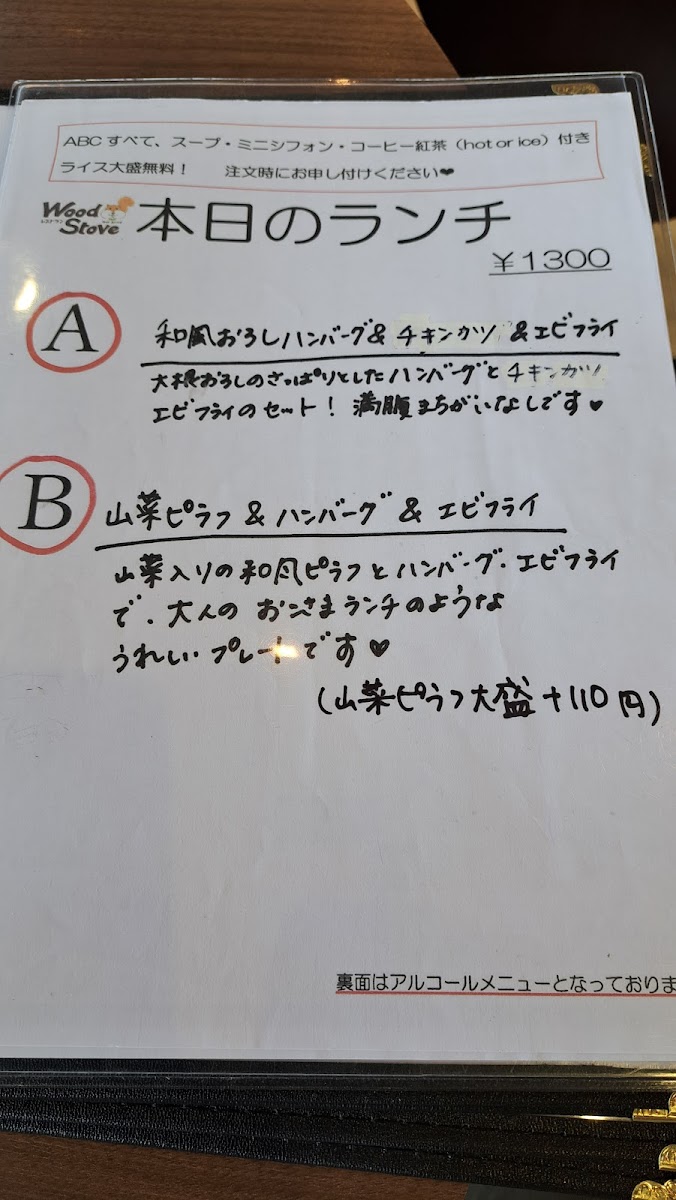 ABCすべて、スープ・ミニシフォン・コーヒー紅茶（hot or ice）付き
ライス大盛無料！　注文時にお申し付けください❤
Wood Stove 本日のランチ
￥1300
A 和風おろしハンバーグ&チキンカツ&エビフライ
大根おろしのさっぱりとしたハンバーグとチキンカツ
エビフライのセット！満腹まちがいなしです♥
B 山菜ピラフ&ハンバーグ&エビフライ
山菜入りの和風ピラフとハンバーグ・エビフライ
で、大人のおこさまランチのような
うれしいプレートです♥
(山菜ピラフ大盛+110円)
裏面はアルコールメニューとなっておりま